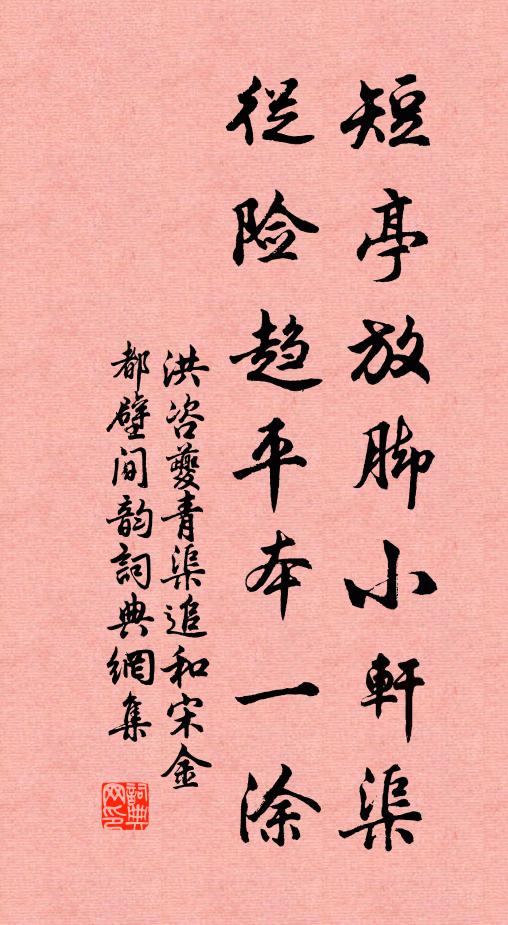 短亭放脚小軒渠
從险趋平本一涂
洪咨夔青渠追和宋金
都壁间韵詞典網集
詞典网印